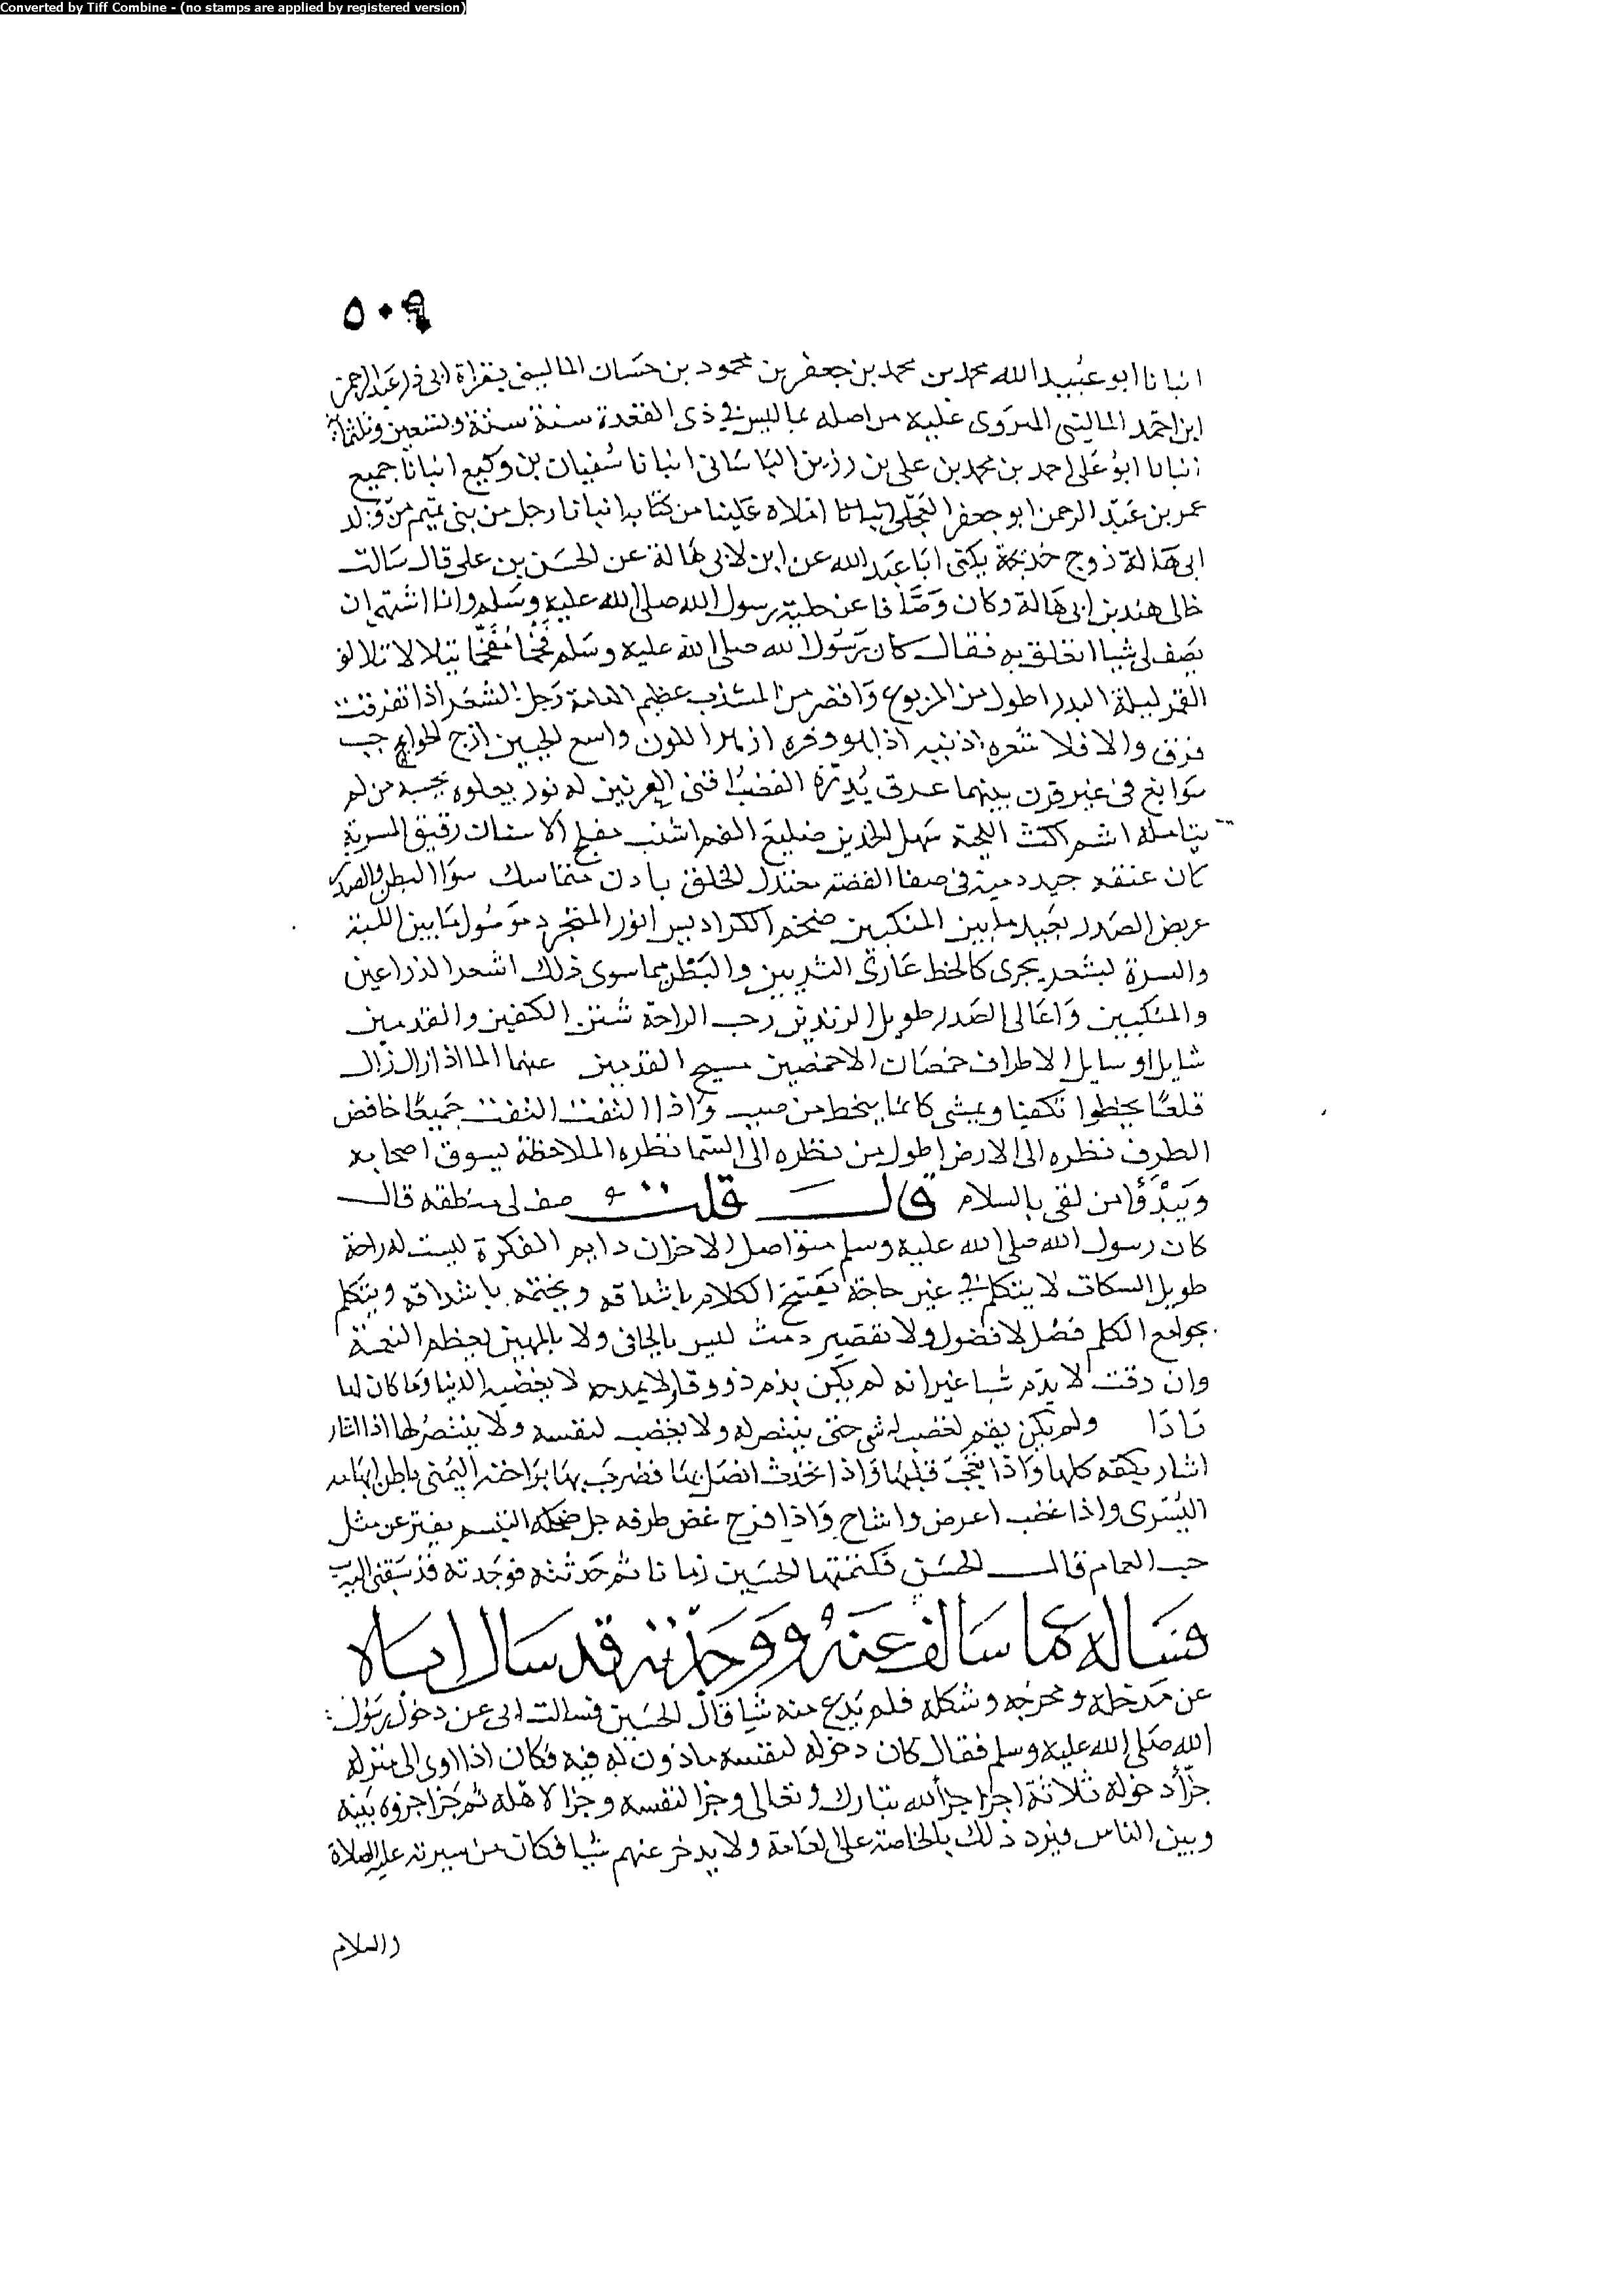 Converted by Tiff Combine - (no stamps are applied by registered version)
٥٠٩
انبانا ابو عبيد الله محمد بن محمد بن جعفر بن محمود بن حسان الماليني بقراة ابى ذر عبد الرحمن
ابن احمد المالينى الهروى عليه من اصله بمالين فى ذى القعدة سنة ستة وتسعين وثلثماية
انبانا ابو على احمد بن محمد بن على بن رزين الباسانى انبانا سفيان بن وكيع انبانا جميع
عمر بن عبد الرحمن ابو جعفر العجلى انبانا املاه علينا من كتابه انبانا رجل من بنى تميم من ولد
ابى هالة زوج خديجة يكنى ابا عبد الله عن ابن لابى هالة عن الحسن بن على قال سالت
خالى هند بن ابى هالة وكان وصافا عن حلية رسول الله صلى الله عليه وسلم وانا اشتهى ان
يصف لى شيا اتعلق به فقال كان رسول الله صلى الله عليه وسلم فخما مفخما يتلالا تلالؤ
القمر ليلة البدر اطول من المربوع واقصر من المشذب عظيم الهامة رجل الشعر اذا تفرقت
فرق والا فلا شعره اذنيه اذا هو وفره ازهر اللون واسع الجبين ازج الحواجب
سوابغ فى غير قرن بينهما عرق يدره الغضب اقنى العرنين له نور يعلوه يحسبه من لم
يتامله اشم اكث اللحية سهل الخدين ضليع الفم اشنب مفلج الاسنان رقيق المسربة
كان عنقه جيد دمية فى صفا الفضة معتدل الخلق بادن متماسك سوا البطن والصدر
عريض الصدر بعيد ما بين المنكبين ضخم الكراديس انور المتجرد موصول ما بين اللبة
والسرة بشعر يجرى كالخط عارى الثديين والبطن مما سوى ذلك اشعر الذراعين
والمنكبين واعالى الصدر طويل الزندين رحب الراحة شثن الكفين والقدمين
شايل او سايل الاطراف خمصان الاخمصين مسيح القدمين عنهما الما اذا زال زال
قلعا يخطوا تكفيا ويمشى كانما ينحط من صبب واذا التفت التفت جميعا خافض
الطرف نظره الى الارض اطول من نظره الى السما نظره الملاحظة يسوق اصحابه
ويبدؤا من لقى بالسلام قال قلت صف لى منطقه قال
كان رسول الله صلى الله عليه وسلم متواصل الاحزان دايم الفكرة ليست له راحة
طويل السكات لا يتكلم فى غير حاجة يفتتح الكلام باشداقه ويختمه باشداقه ويتكلم
بجوامع الكلم فصل لا فضول ولا تقصير دمث ليس بالجافى ولا بالمهين يعظم النعمة
وان دقت لا يذم شيا غير انه لم يكن يذم ذو وقا ولا يمدحه لا يغضبه الدنيا وما كان لها
فاذا ولم يكن يقم لغضبه شى حتى ينتصر له ولا يغضب لنفسه ولا ينتصر لها اذا اشار
اشار بكفه كلها واذا تعجب قلبها واذا تحدث اتصل بها فضرب بها براحته اليمنى باطن ابهامه
اليسرى واذا غضب اعرض واشاح واذا فرح غض طرفه جل ضحكه التبسم يفتر عن مثل
حب الغمام قال الحسن فكتمتها الحسين زمانا ثم حدثته فوجدته قد سبقنى اليه
فساله عما سالف عنه ووجدته قد سال اباه
عن مدخله ومخرجه وشكله فلم يدع منه شيا قال الحسين فسالت ابى عن دخول رسول
الله صلى الله عليه وسلم فقال كان دخوله لنفسه ماذون له فيه فكان اذا اوى الى منزله
جزأ دخوله ثلاثة اجزا جزأ لله تبارك وتعالى وجزا لنفسه وجزا لاهله ثم جزا جزوه بينه
وبين الناس فيرد ذلك بالخاصة على العامة ولا يدخر عنهم شيا فكان من سيرته عليه الصلاة
والسلام